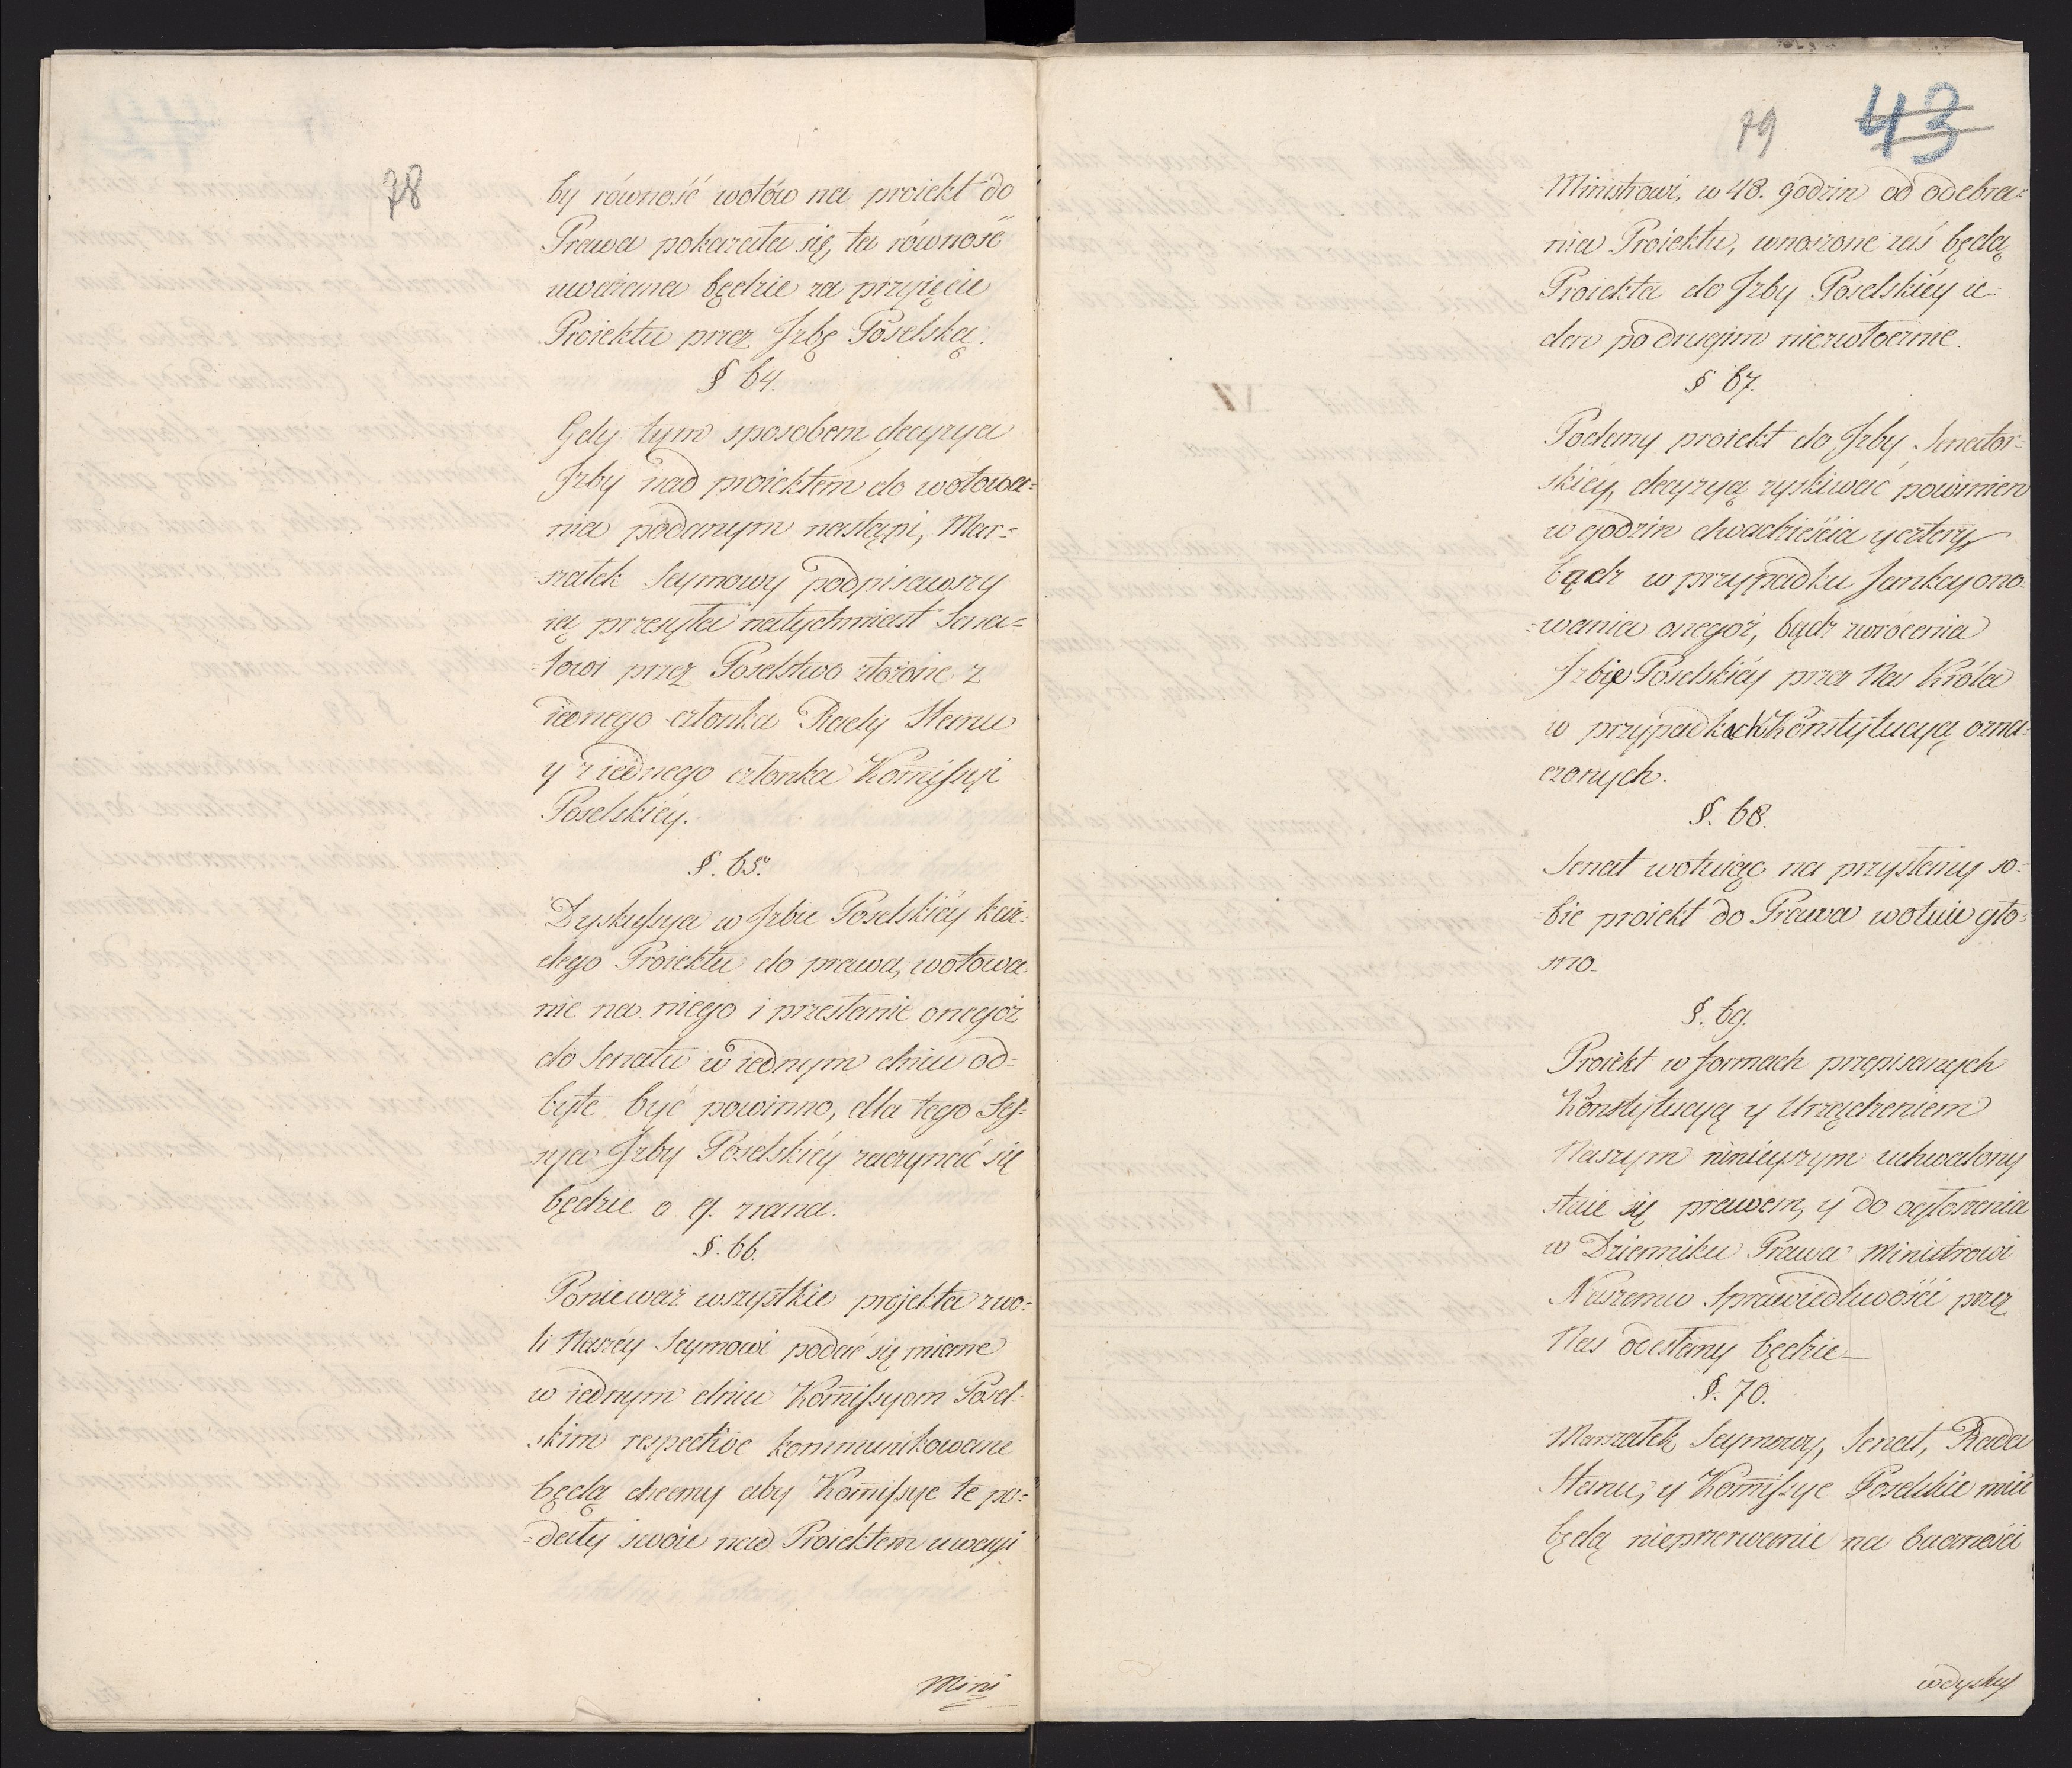 78
by równość wotów na proiekt do
Prawa pokazała się, ta równość
uważana będzie za przyięcie
Proiektu przez Jzbę Poselską.
§ 64.
Gdy tym sposobem decyzya
Jzby nad proiektem do wotowa=
nia podanym nastąpi, Mar=
szałek Seymowy podpisawszy
ią przesyła natychmiast Sena=
=towi przez Poselstwo złożone z
iednego członka Rady Stanu
y z iednego członka Kom̄issyi
Poselskiéy.
§. 65.
Dyskussya w Jzbie Poselskiéy każ=
dego Proiektu do prawa, wotowa=
nie na niego i przesłanie onegoż
do Senatu w iednym dniu od=
byte być powinno, dla tego Ses=
sya Jzby Poselskiéy zaczynać się
będzie o 9. zrana.
§. 66.
Ponieważ wszystkie projekta z wo=
li Naszéy Seymowi podać się miane
w iednym dniu Kom̄issyom Posel=
skim respective kommunikowane
będą chcemy aby Kom̄issye te po=
=dały swoie nad Proiektem uwagi
Mini
79
43
Ministrowi, w 48. godzin od odebra=
nia Proiektu, wnoszone zaś będą
Proiekta do Jzby Poselskiéy ie=
den po drugim niezwłocznie.
§ 67.
Podany proiekt do Jzby Senator=
skiéy, decyzyą zyskiwać powinien
w godzin dwadzieścia y cztery
bądź w przypadku sankcyono=
=wania onegoż, bądź zwrócenia
Jzbie Poselskiéy przez Nas Króla
w przypadkach Konstytucyą ozna=
czonych.
§. 68.
Senat wotuiąc na przysłany so=
bie proiekt do Prawa wotuie gło=
sno.
§. 69.
Proiekt w formach przepisanych
Konstytucyą y Urządzeniem
Naszym ninieyszym uchwalony
staie się prawem, y do ogłoszenia
w Dzienniku Prawa Ministrowi
Naszemu Sprawiedliwości przez
Nas odesłany będzie—
§. 70.
Marszałek Seymowy, Senat, Rada
Stanu, y Kom̄issye Poselskie mieć
będą nieprzerwanie na baczności
w dyskus